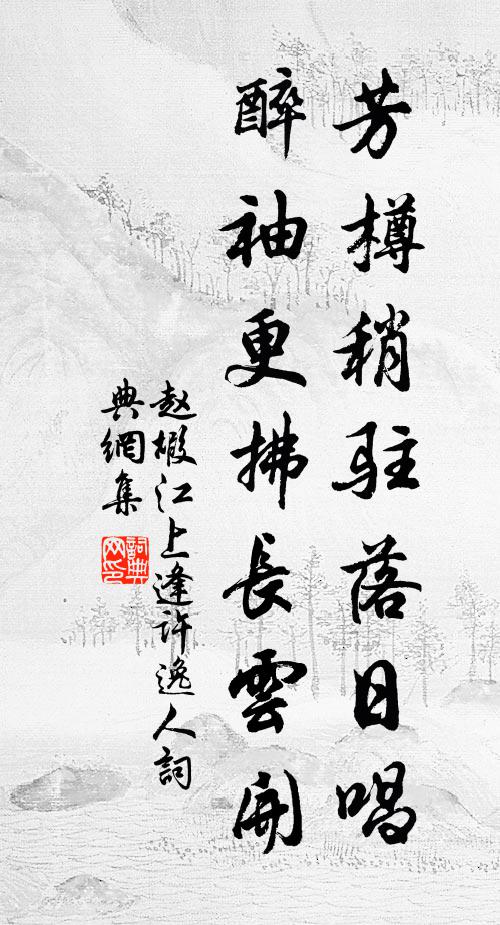 芳樽稍駐落日唱
醉袖更拂長雲開
赵椴江上逢许逸人詞
典網集
詞典网印